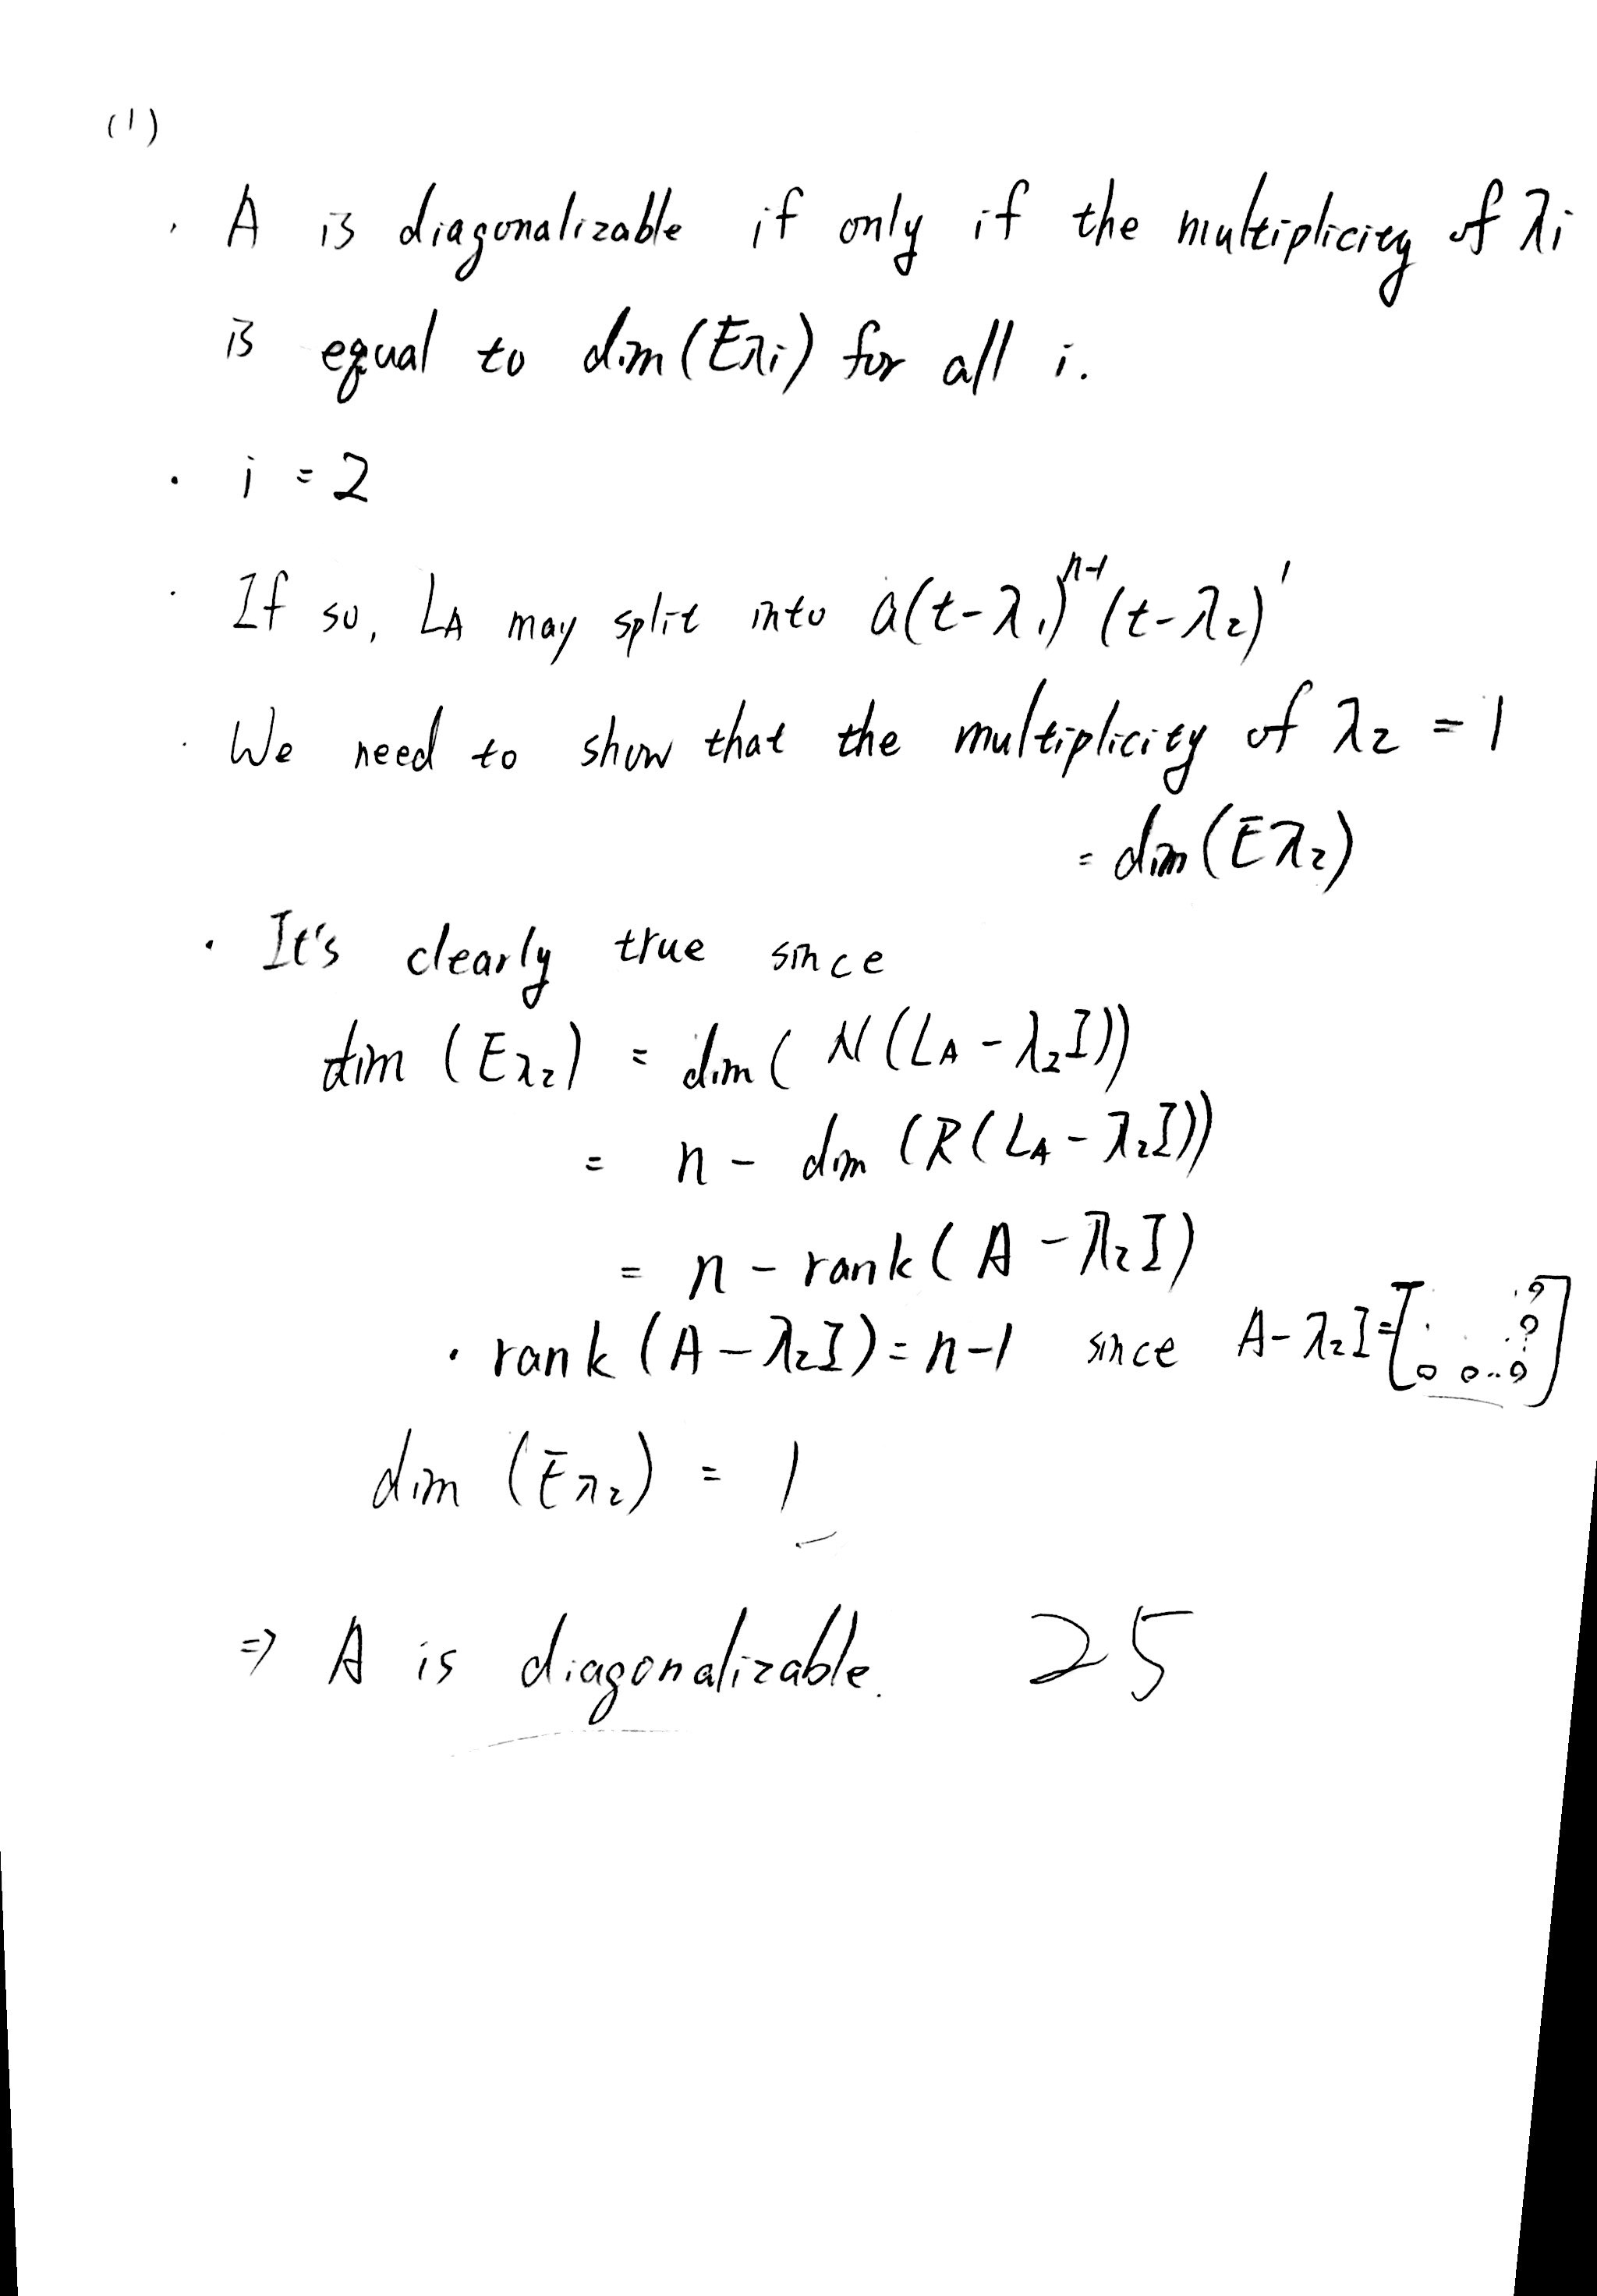 (1)
· A is diagonalizable if only if the multiplicity of λi
is equal to dim(Eλi) for all i.
· i = 2
· If so, LA may split into a(t-λ1)^n-1 (t-λ2)^1
· We need to show that the multiplicity of λ2 = 1
= dim(Eλ2)
· It's clearly true since
dim (Eλ2) = dim( N(LA - λ2I))
= n - dim (R(LA - λ2I))
= n - rank( A - λ2I)
· rank (A - λ2I) = n-1 since A - λ2I = [· . ? · .? 0 0..0]
dim (Eλ2) = 1
⇒ A is diagonalizable. 25